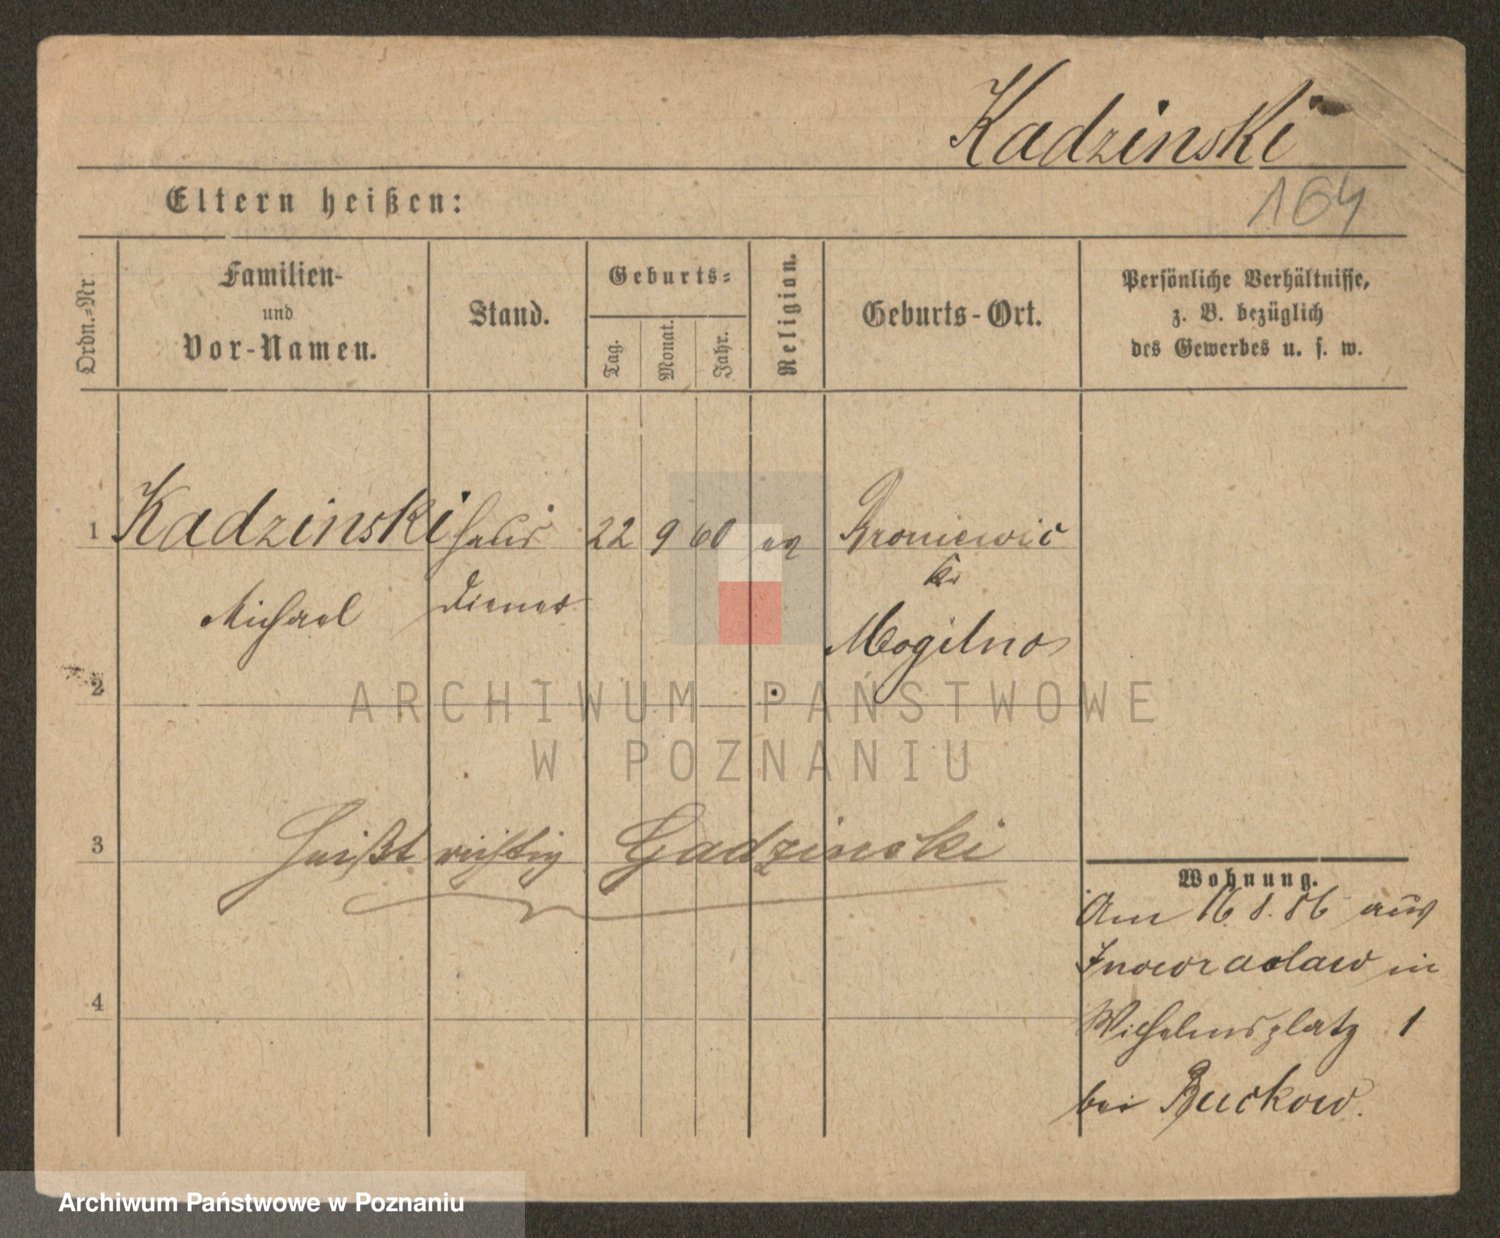 Kadzinski
164
Eltern heißen:
Ordn.-Nr
Familien-
und
Vor-Namen.
Stand.
Geburts-
Tag.
Monat.
Jahr.
Religion.
Geburts-Ort.
Persönliche Verhältnisse,
z. B. bezüglich
des Gewerbes u. s. w.
1 Kadzinski Haus 22 9 60 Broniewic
Kr
Michael Diener Mogilno
2
ARCHIWUM PAŃSTWOWE
W POZNANIU
3 heißt richtig Gadzinski
Wohnung.
Am 16. 8. 86 aus
Inowraclaw in
4
Wilhelmsplatz 1
bei Buckow.
Archiwum Państwowe w Poznaniu